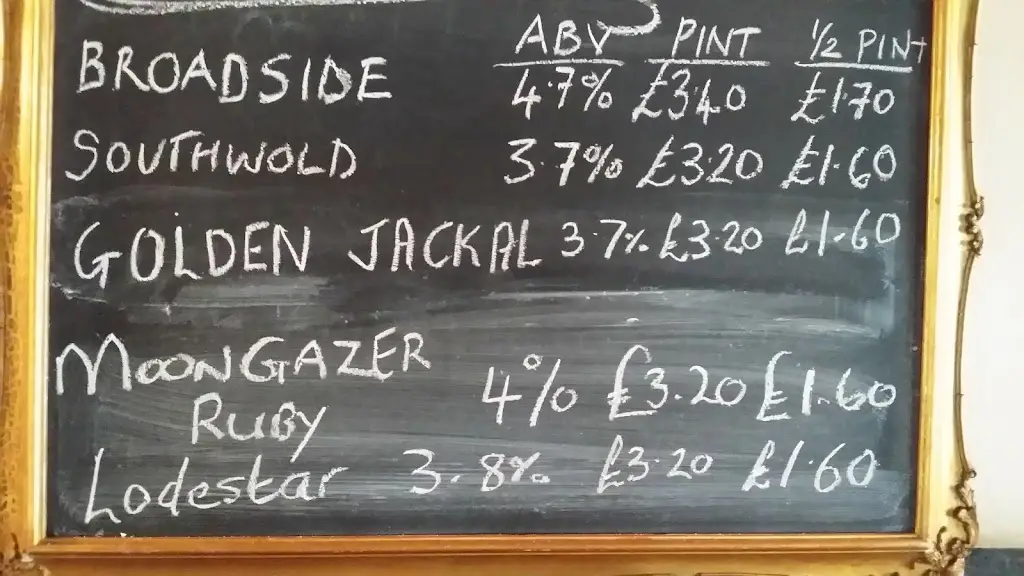 ABV PINT 1/2 PINT
BROADSIDE 4.7% £3.40 £1.70
SOUTHWOLD 3.7% £3.20 £1.60
GOLDEN JACKAL 3.7% £3.20 £1.60
MOONGAZER 4% £3.20 £1.60
RUBY
Lodestar 3.8% £3.20 £1.60